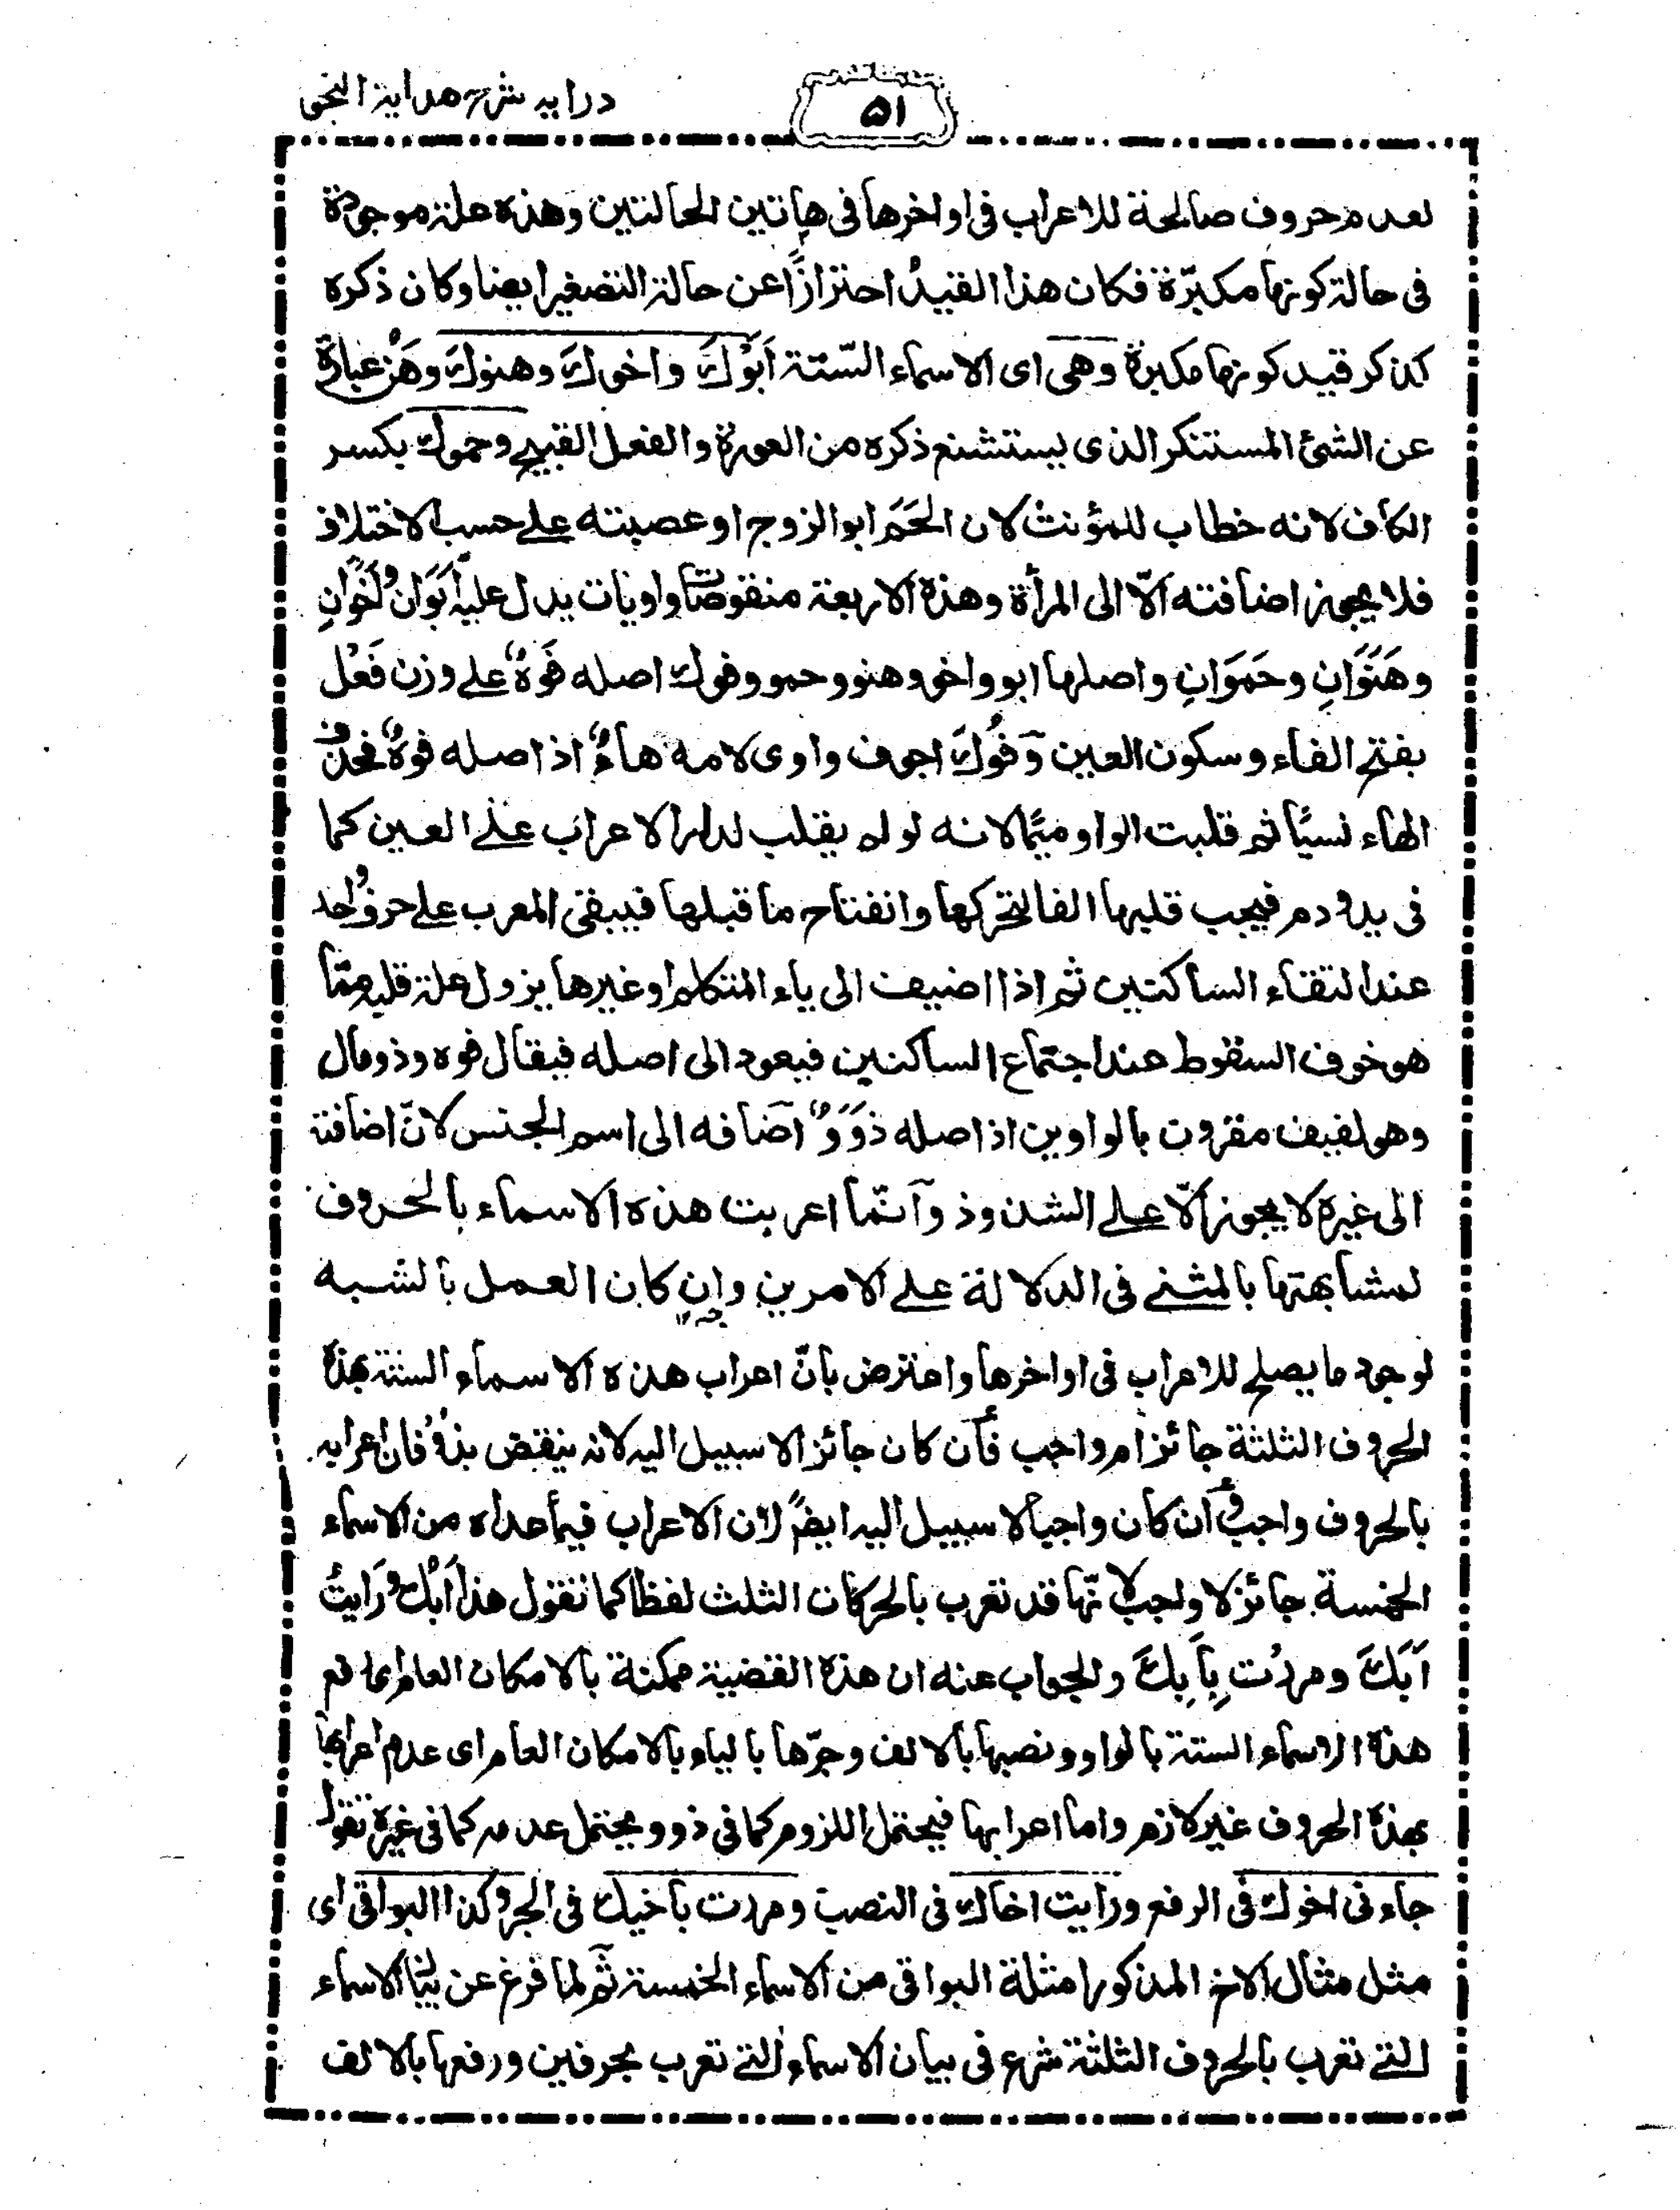 درايه شرح هداية النحو
۵۱
لعدم حروف صالحة للاعراب فى اواخرها فى هاتين الحالتين وهذه علة موجودة
فى حالة كونها مكبرّة فكان هذا القيدُ احترازًا عن حالة التصغير ايضا وكان ذكره
كذكر قيد كونها مكبرة وهى اى الاسماء السّتة اَبُوْكَ واخوك وهنوك وهَنٌ عبارة
عن الشئ المستنكر الذى يستشنع ذكره من العورة والفعل القبيح وحموك بكسر
الكاف لانه خطاب للمؤنث لان الحَمَ ابو الزوج او عصبته على حسب الاختلاف
فلا يجوز اضافته الّا الى المرأة وهذه الاربعة منقوصات واويات يدل عليه اَبَوَانِ واَخَوَانِ
وهَنَوَانِ وحَمَوَانِ واصلها ابو واخو وهنو وحمو وفوك اصله فَوْهٌ على وزن فَعْل
بفتح الفاء وسكون العين وَفُوْكَ اجوف واوى لامه هاءٌ اذ اصله فوهٌ فحذف
الهاء نسيًا ثم قلبت الواو ميمًا لانه لو لم يقلب لدار الاعراب على العين كما
فى يد ودم فيجب قلبها الفا لتحركها وانفتاح ما قبلها فيبقى المعرب على حرف واحد
عند التقاء الساكنين ثم اذا اضيف الى ياء المتكلم او غيرها يزول علة قلبه ميمًا
هو خوف السقوط عند اجتماع الساكنين فيعود الى اصله فيقال فوه وذو مال
وهو لفيف مقرون بالواوين اذ اصله ذَوَوٌ اضافه الى اسم الجنس لانّ اضافته
الى غيره لا يجوز الّا على الشذوذ وانّما اعربت هذه الاسماء بالحروف
لمشابهتها بالمثنى فى الدلالة على الامرين وان كان العمل بالشبه
لوجود ما يصلح للاعراب فى اواخرها واعترض بانّ اعراب هذه الاسماء الستة بهذه
الحروف الثلثة جائز ام واجب فأن كان جائزا لا سبيل اليه لانه ينقض بذو فان اعرابه
بالحروف واجب وأن كان واجبا لا سبيل اليه ايضًا لان الاعراب فيما عداه من الاسماء
الخمسة جائز لا واجب لانّها قد تعرب بالحركات الثلث لفظا كما تقول هذا اَبُكَ ورَايتُ
اَبَكَ ومررُت بِاَبِكَ والجواب عنه ان هذه القضية ممكنة بالامكان العام اى رفع
هذه الاسماء الستة بالواو ونصبها بالالف وجرّها بالياء بالامكان العام اى عدم اعرابها
بهذه الحروف غير لازم واما اعرابها فيحتمل اللزوم كما فى ذو ويحتمل عدمه كما فى غيره تقول
جاءنى اخوك فى الرفع ورايت اخاك فى النصب ومررت باخيك فى الجر وكذا البواقى اى
مثل مثال الاخ المذكور امثلة البواقى من الاسماء الخمسة ثم لما فرغ عن بيان الاسماء
التى تعرب بالحروف الثلثة شرع فى بيان الاسماء التى تعرب بحرفين ورفعها بالالف